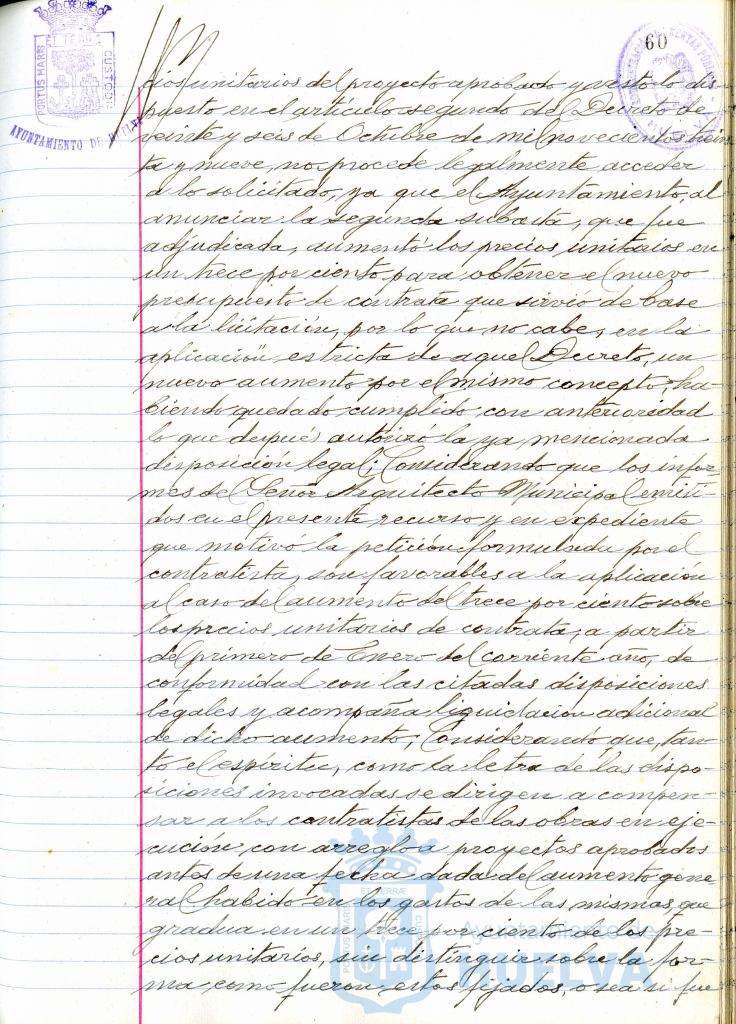 60
PORTUS MARIS
ET TERRAE
CUSTODIA
AYUNTAMIENTO DE HUELVA
cios unitarios del proyecto aprobado y visto lo dis-
puesto en el artículo segundo del Decreto de
veinte y seis de Octubre de mil novecientos trein
ta y nueve, no procede legalmente acceder
a lo solicitado, ya que el Ayuntamiento, al
anunciar la segunda subasta, que fue
adjudicada, aumentó los precios unitarios en
un trece por ciento para obtener el nuevo
presupuesto de contrata que sirvió de base
a la licitación, por lo que no cabe, en la
aplicación estricta de aquel Decreto, un
nuevo aumento por el mismo concepto, ha-
biendo quedado cumplido con anterioridad
lo que después autorizó la ya mencionada
disposición legal; Considerando que los infor-
mes del Señor Arquitecto Municipal emiti-
dos en el presente recurso y en expediente
que motivó la petición formulada por el
contratista, son favorables a la aplicación
al caso del aumento del trece por ciento sobre
los precios unitarios de contrata, a partir
del primero de Enero del corriente año, de
conformidad con las citadas disposiciones
legales y acompaña liquidación adicional
de dicho aumento; Considerando que, tan-
to el espíritu, como la letra de las dispo-
siciones invocadas se dirigen a compen-
sar a los contratistas de las obras en eje-
cución con arreglo a proyectos aprobados
antes de una fecha dada del aumento gene-
ral habido en los gastos de las mismas, que
gradua en un trece por ciento de los pre-
cios unitarios, sin distinguir sobre la for-
ma como fueron estos fijados, o sea si fue
Ayuntamiento de
HUELVA